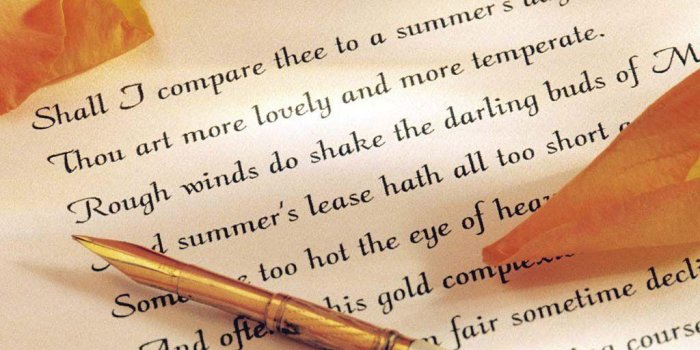 Shall I compare thee to a summer's
Thou art more lovely and more temperate.
Rough winds do shake the darling buds of
summer's lease hath all too short
too hot the eye of
And his gold
fair sometime